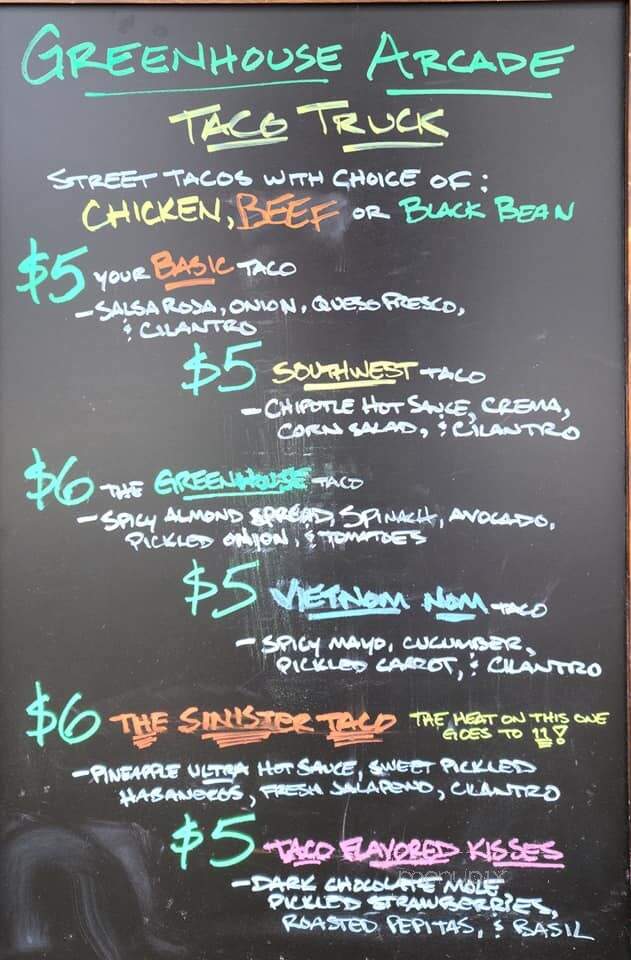 GREENHOUSE ARCADE
TACO TRUCK
STREET TACOS WITH CHOICE OF:
CHICKEN, BEEF OR BLACK BEAN
$5 YOUR BASIC TACO
- SALSA ROJA, ONION, QUESO FRESCO,
& CILANTRO
$5 SOUTHWEST TACO
- CHIPOTLE HOT SAUCE, CREMA,
CORN SALAD, & CILANTRO
$6 THE GREENHOUSE TACO
- SPICY ALMOND SPREAD, SPINACH, AVOCADO,
PICKLED ONION, & TOMATOES
$5 VIETNOM NOM TACO
- SPICY MAYO, CUCUMBER,
PICKLED CARROT, & CILANTRO
$6 THE SINISTER TACO THE HEAT ON THIS ONE
GOES TO 11!
- PINEAPPLE ULTRA HOT SAUCE, SWEET PICKLED
HABANEROS, FRESH JALAPENO, CILANTRO
$5 TACO FLAVORED KISSES
- DARK CHOCOLATE MOLE,
PICKLED STRAWBERRIES,
ROASTED PEPITAS, & BASIL
menupix